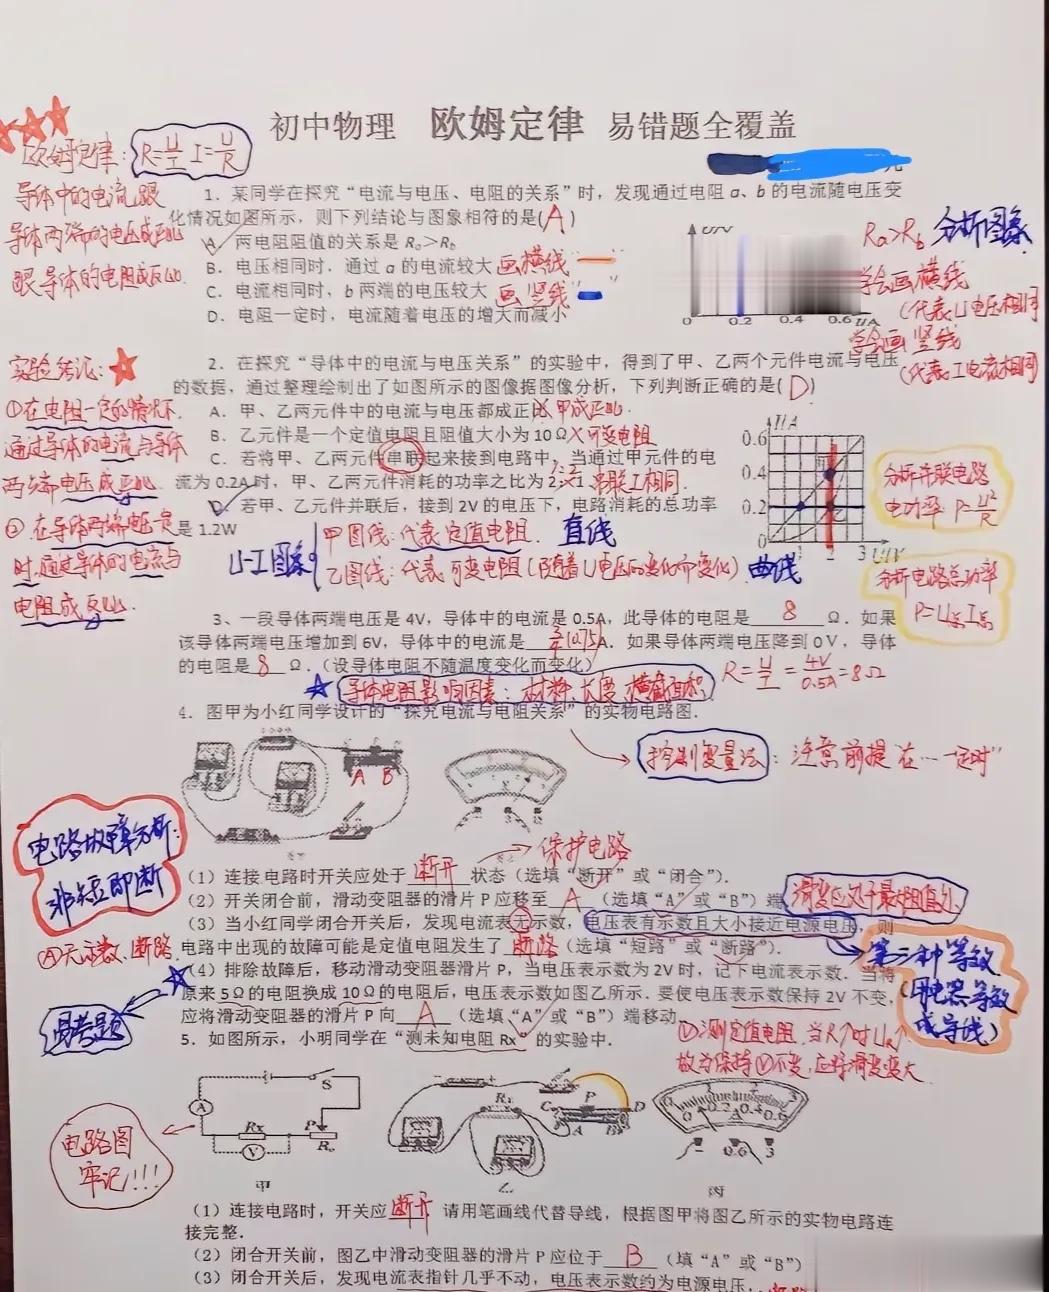 初中物理 欧姆定律 易错题全覆盖
欧姆定律: R=U/I I=U/R
导体中的电流跟
导体两端的电压成正比
跟导体的电阻成反比.
1. 某同学在探究“电流与电压、电阻的关系”时，发现通过电阻 a、b 的电流随电压变
化情况如图所示，则下列结论与图象相符的是(A)
A. 两电阻阻值的关系是 Ra>Rb
B. 电压相同时，通过 a 的电流较大 画横线“ ”
C. 电流相同时，b 两端的电压较大 画竖线“ ”
D. 电阻一定时，电流随着电压的增大而减小
U/V
0 0.2 0.4 0.6 I/A
Ra>Rb 分析图象
学会画横线
(代表U电压相同)
学会画竖线
(代表I电流相同)
实验结论:
①在电阻一定的情况下.
通过导体的电流与导体
两端电压成正比.
②在导体两端电压一定
时.通过导体的电流与
电阻成反比.
2. 在探究“导体中的电流与电压关系”的实验中，得到了甲、乙两个元件电流与电压
的数据，通过整理绘制出了如图所示的图像据图像分析，下列判断正确的是(D)
A. 甲、乙两元件中的电流与电压都成正比X 甲成正比.
B. 乙元件是一个定值电阻且阻值大小为 10Ω X 可变电阻
C. 若将甲、乙两元件串联起来接到电路中，当通过甲元件的电
流为 0.2A 时，甲、乙两元件消耗的功率之比为 2:1 1:2 串联I相同.
D. 若甲、乙两元件并联后，接到 2V 的电压下，电路消耗的总功率
是 1.2W
I/A
0.6
0.4
0.2
0 1 2 3 U/V
分析并联电路
电功率 P=U²/R
分析电路总功率
P=U总I总
U-I图象
甲图线: 代表定值电阻. 直线
乙图线: 代表可变电阻(随着U电压的变化而变化). 曲线
3、一段导体两端电压是 4V，导体中的电流是 0.5A，此导体的电阻是 8 Ω．如果
该导体两端电压增加到 6V，导体中的电流是 3/4(0.75) A．如果导体两端电压降到 0V，导体
的电阻是 8 Ω．(设导体电阻不随温度变化而变化)
R=U/I=4V/0.5A=8Ω
导体电阻影响因素: 材料、长度、横截面积.
4. 图甲为小红同学设计的“探究电流与电阻关系”的实物电路图．
控制变量法: 注意前提在…一定时”
A B
电路故障分析:
非短即断
保护电路
(1) 连接电路时开关应处于 断开 状态（选填“断开”或“闭合”）．
(2) 开关闭合前，滑动变阻器的滑片 P 应移至 A （选填“A”或“B”）端 滑变应处于最大阻值处
(3) 当小红同学闭合开关后，发现电流表无示数，电压表有示数且大小接近电源电压，则
Ⓐ无示数、断路
电路中出现的故障可能是定值电阻发生了 断路 （选填“短路”或“断路”）．
(4) 排除故障后，移动滑动变阻器滑片 P，当电压表示数为 2V 时，记下电流表示数．当将
原来 5Ω的电阻换成 10Ω的电阻后，电压表示数如图乙所示．要使电压表示数保持 2V 不变，
应将滑动变阻器的滑片 P 向 A （选填“A”或“B”）端移动．
第二种等效
(用电器等效
成导线)
易考题
Ⓥ测定值电阻. 当R↑时U↑
故为保持Ⓥ不变,应将滑变变大.
5. 如图所示，小明同学在“测未知电阻 Rx”的实验中．
S
A
Rx P
V
甲
Rx
C P D
A B
乙
0 0.2 0.4 0.6
A
－ 0.6 3
丙
电路图
牢记!!!
(1) 连接电路时，开关应 断开 请用笔画线代替导线，根据图甲将图乙所示的实物电路连
接完整．
(2) 闭合开关前，图乙中滑动变阻器的滑片 P 应位于 B （填“A”或“B”）
(3) 闭合开关后，发现电流表指针几乎不动，电压表示数约为电源电压，